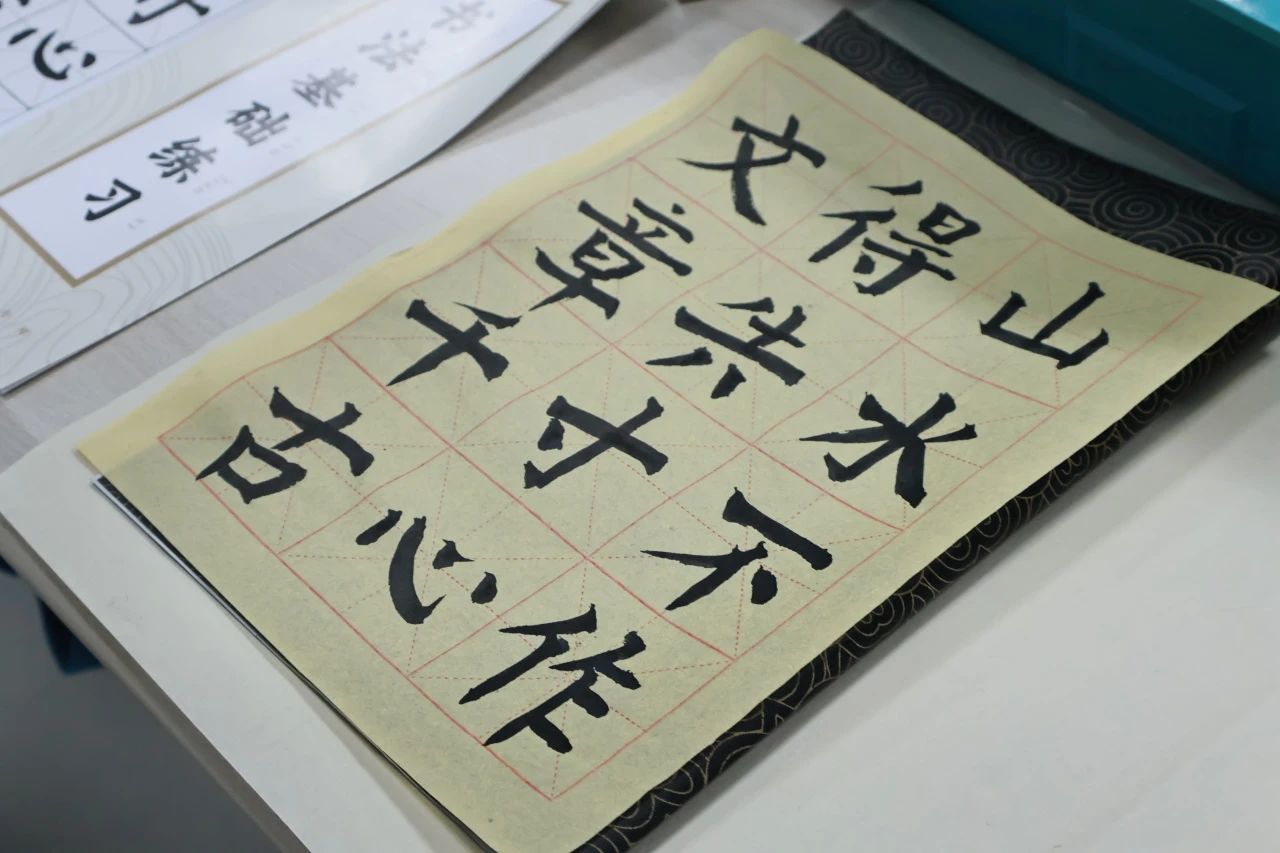 书法基础练习
心
山水不作
得共寸心
文章千古